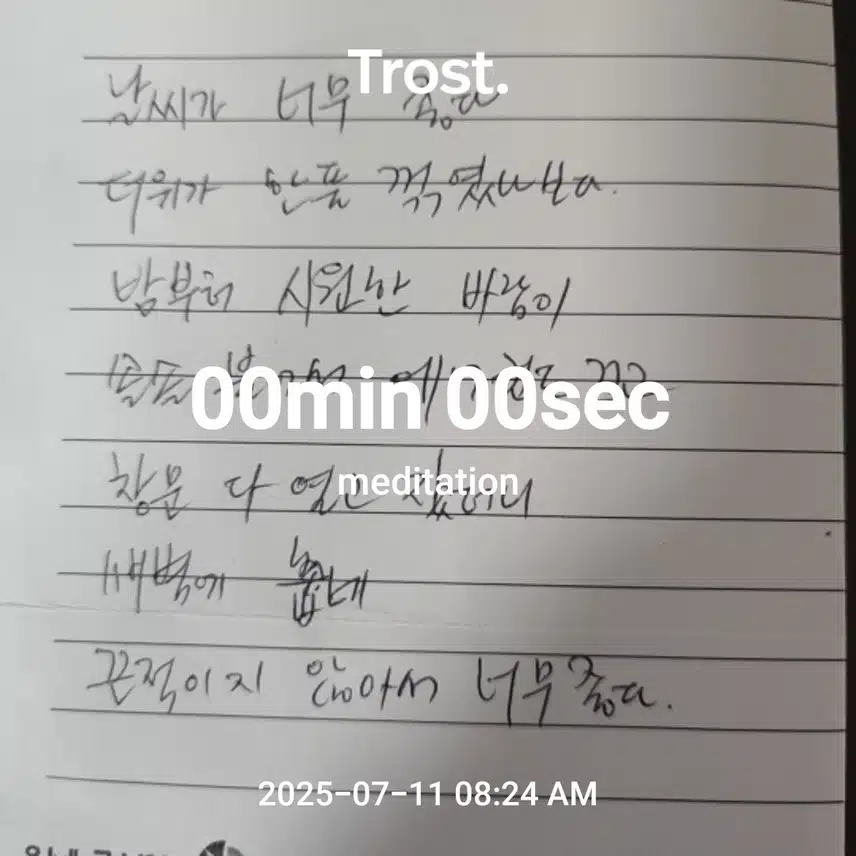 Trost.
날씨가 너무 좋다
더위가 한풀 꺽였나보다.
밤부터 시원한 바람이
솔솔
00min 00sec
창문 다 열고 잤더니
meditation
새벽에 춥네
끈적이지 않아서 너무좋다.
2025-07-11 08:24 AM